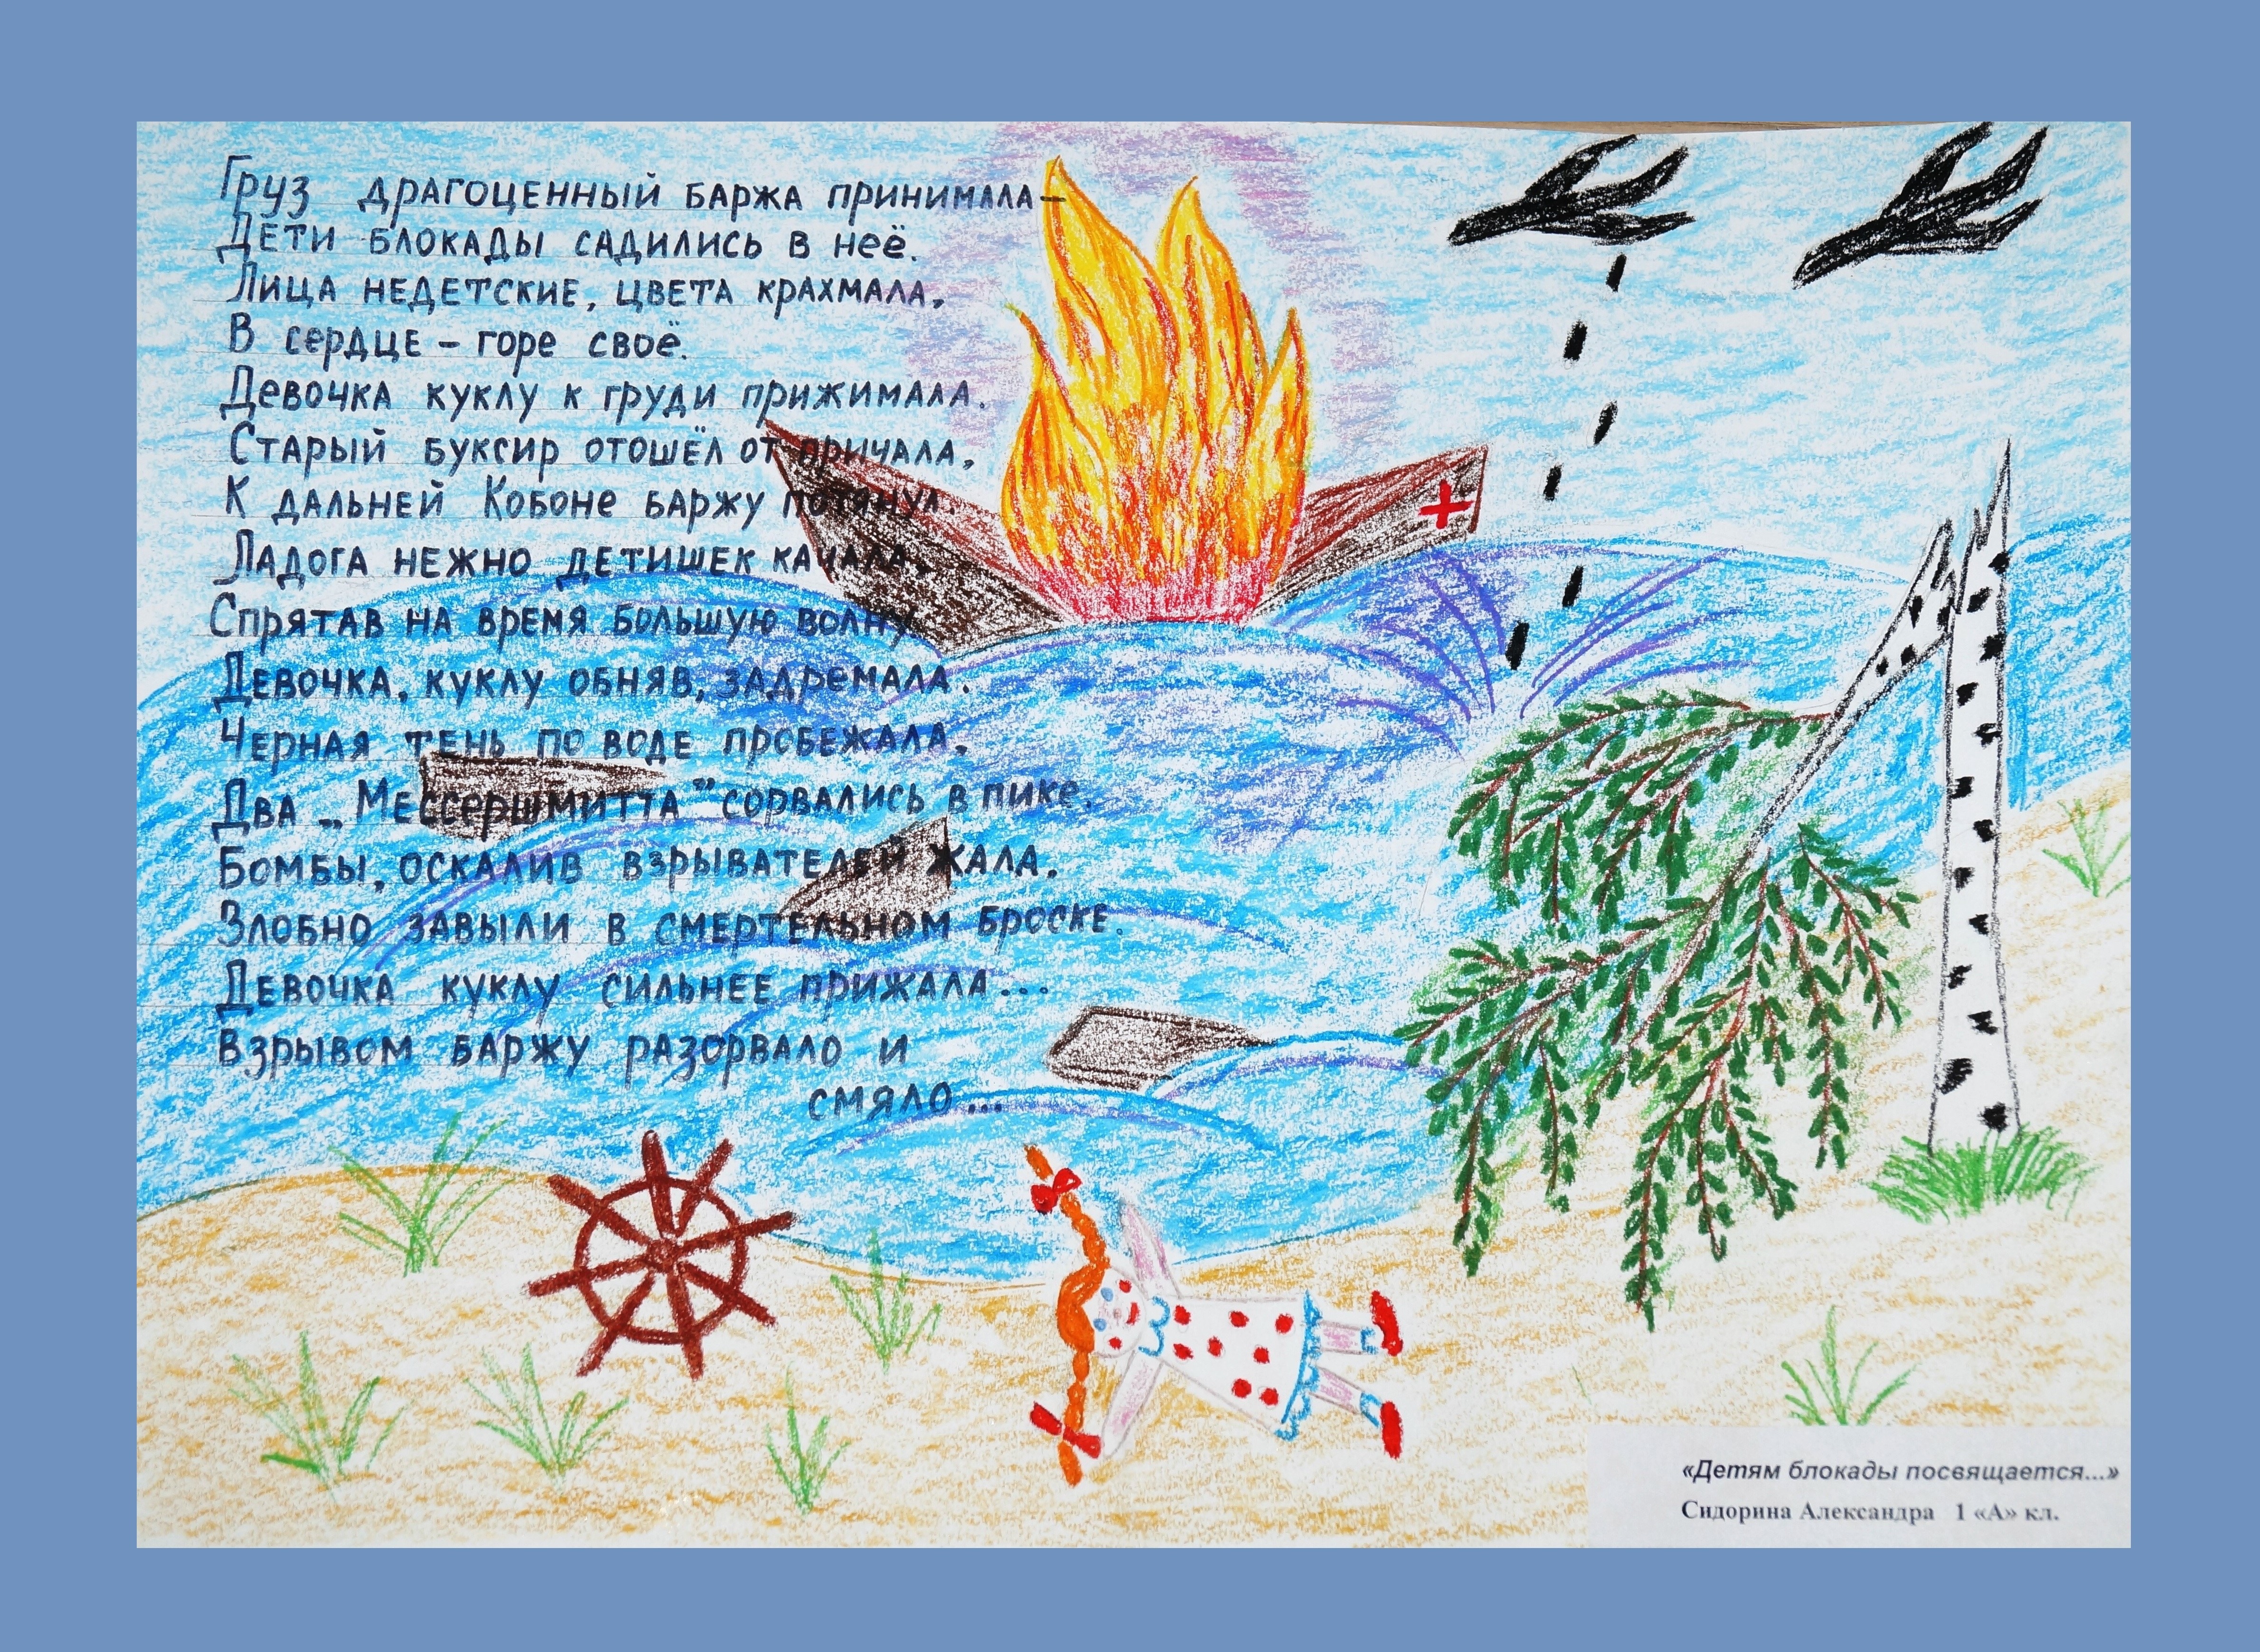 Груз драгоценный баржа принимала –
Дети блокады садились в неё.
Лица недетские, цвета крахмала,
В сердце – горе своё.
Девочка куклу к груди прижимала.
Старый буксир отошёл от причала,
К дальней Кобоне баржу потянул.
Ладога нежно детишек качала,
Спрятав на время большую волну.
Девочка, куклу обняв, задремала.
Черная тень по воде пробежала,
Два „Мессершмитта" сорвались в пике.
Бомбы, оскалив взрывателей жала,
Злобно завыли в смертельном броске.
Девочка куклу сильнее прижала...
Взрывом баржу разорвало и
смяло...
«Детям блокады посвящается...»
Сидорина Александра 1 «А» кл.